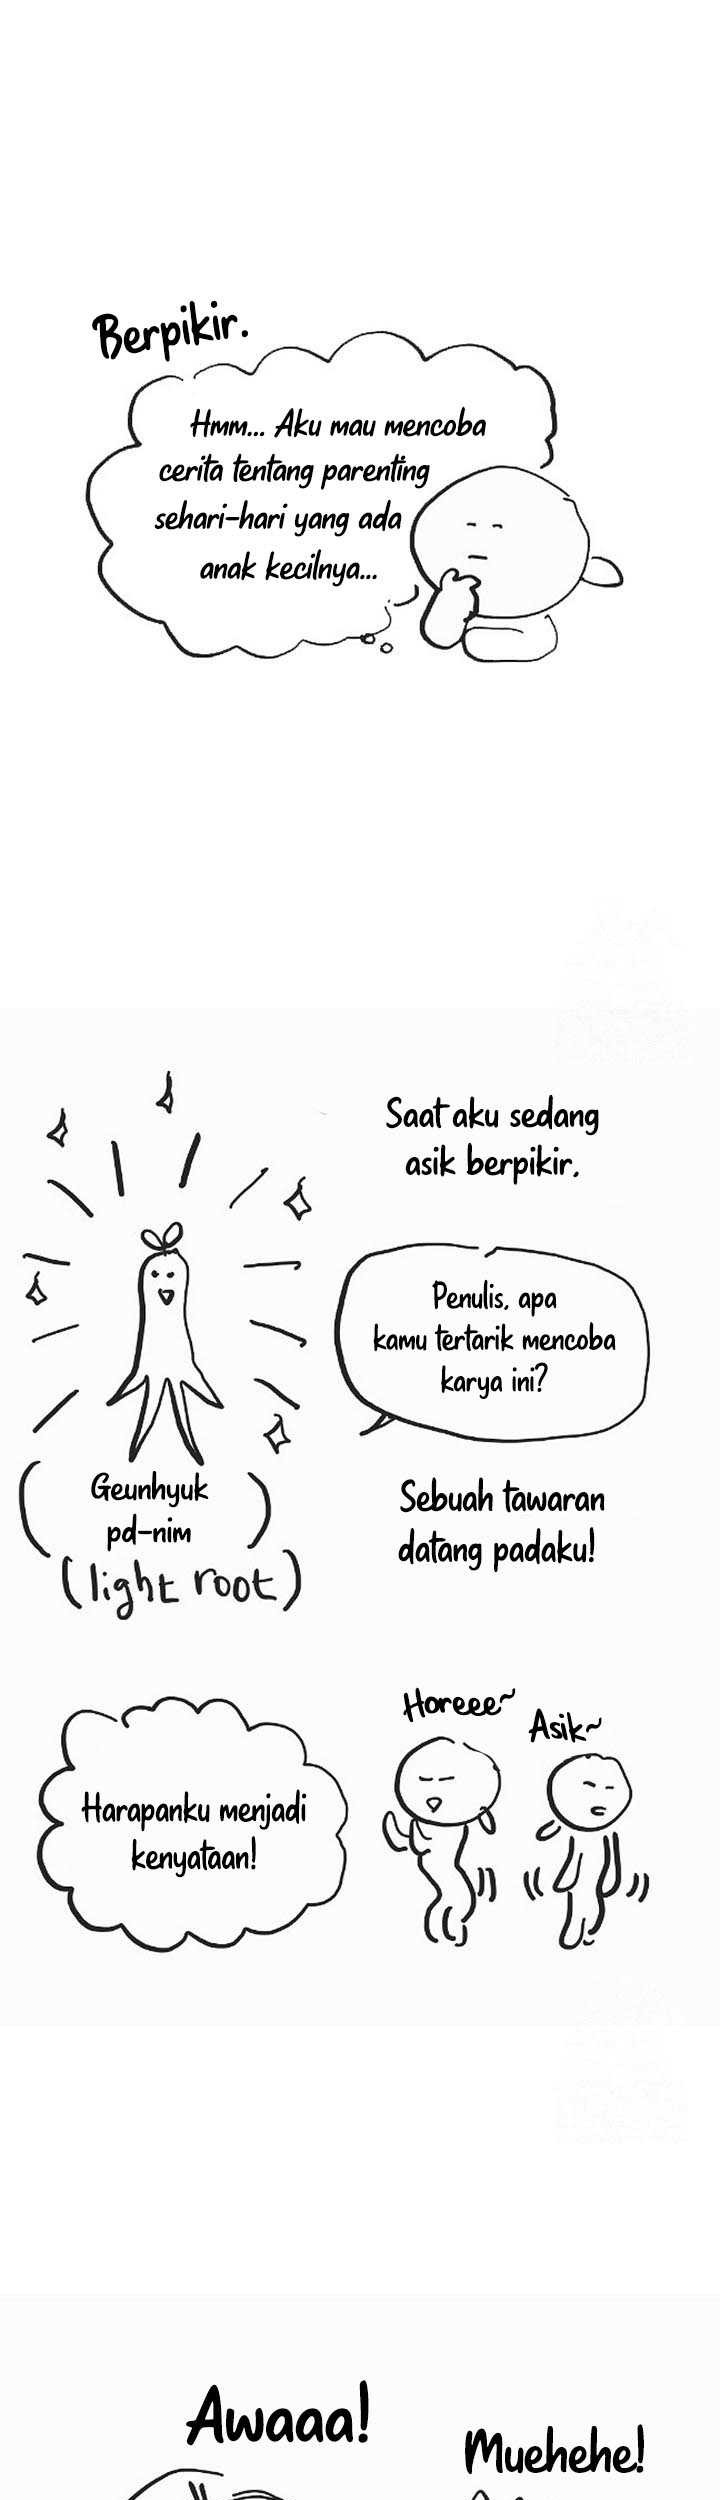 Berpikir.
Hmm... Aku mau mencoba
cerita tentang parenting
sehari-hari yang ada
anak kecilnya...
Saat aku sedang
asik berpikir,
Penulis, apa
kamu tertarik mencoba
karya ini?
Geunhyuk
pd-nim
(light root)
Sebuah tawaran
datang padaku!
Horeee~
Asik~
Harapanku menjadi
kenyataan!
Awaaa!
Muehehe!